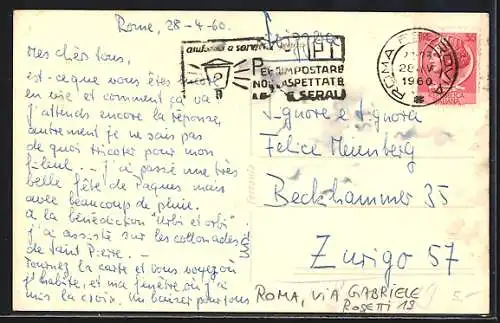 Rome, 28-4-60.
Mes chers tous,
est-ce que vous êtes
en vie et comment ça va
j'attends encore la réponse,
autrement je ne sais pas
de quoi tricoter pour mon
filleul... j'ai passé une très
belle fête de Paques mais
avec beaucoup de pluie.
a la bénédiction "Urbi et orbi"
j'ai assisté sur les collonades
de Saint Pierre. -
Tournez la carte et vous voyez où
j'habite, et ma fenêtre où j'ai
mis la croix. un baiser pour tous
aiutateci a servirvi
PT
PER IMPOSTARE
NON ASPETTATE
SERALI
ROMA FERROVIA
28 IV
1960
Signore e signora
Felice Meienberg
Beckhammer 35
Zurigo 57
ROMA, VIA GABRIELE
ROSETTI 19